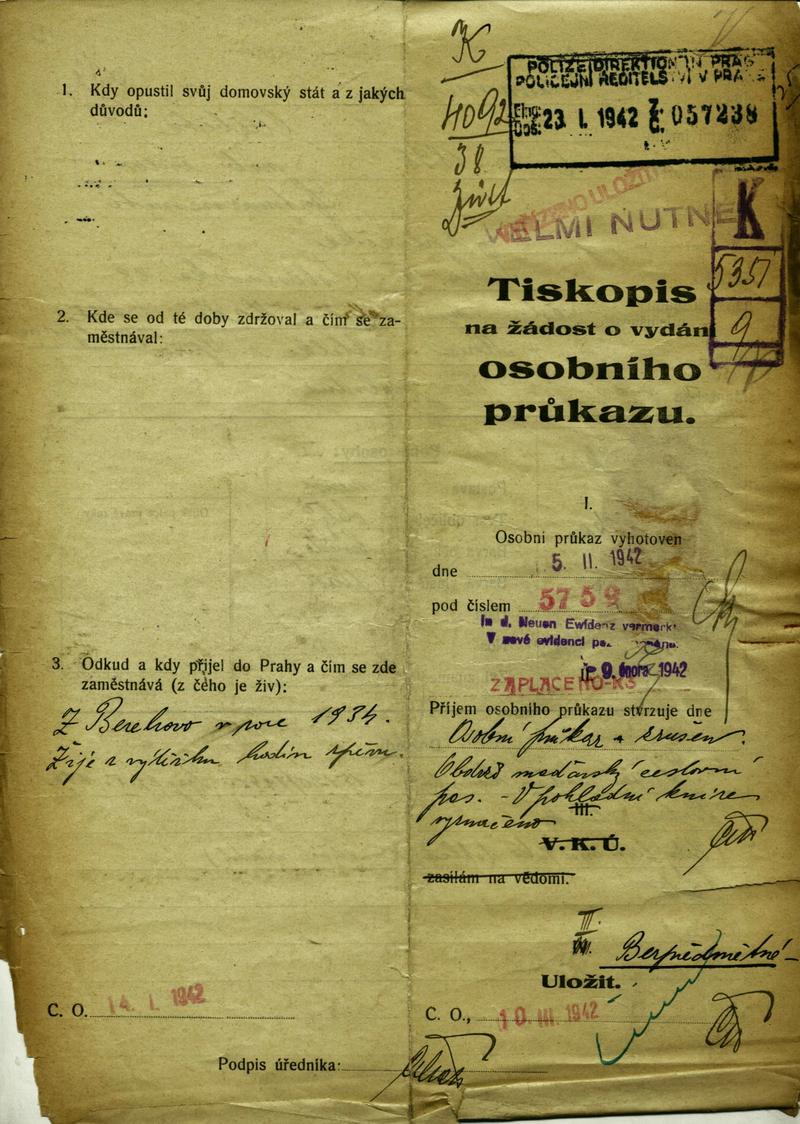 1. Kdy opustil svůj domovský stát a z jakých
důvodů:
2. Kde se od té doby zdržoval a čím se za-
městnával:
3. Odkud a kdy přijel do Prahy a čím se zde
zaměstnává (z čeho je živ):
Z Berehovo v roce 1934.
Žije z výtěžku hodin zpěvu.
C. O. 14. I. 1942
Podpis úředníka:
K
4092
38
POLIZEIDIREKTION IN PRAG
POLICEJNÍ ŘEDITELSTVÍ V PRAZE
Eing.
Doš. 23. I. 1942 Z. Č. 057238
VELMI NUTNÉ
K
5351
9
Tiskopis
na žádost o vydání
osobního
průkazu.
I.
Osobní průkaz vyhotoven
dne 5. II. 1942
pod číslem 5759
In d. Neuen Ewidenz vermerkt
V nové evidenci
9. února 1942
ZAPLACENO-KS
Příjem osobního průkazu stvrzuje dne
Osobní průkaz zrušen.
Obdržel maďarský cestovní
pas. - V pokladní knize
vyznačeno
III.
V. K. Ú.
zasílám na vědomí.
III.
Bezpředmětné
Uložit.
C. O., 10. III. 1942